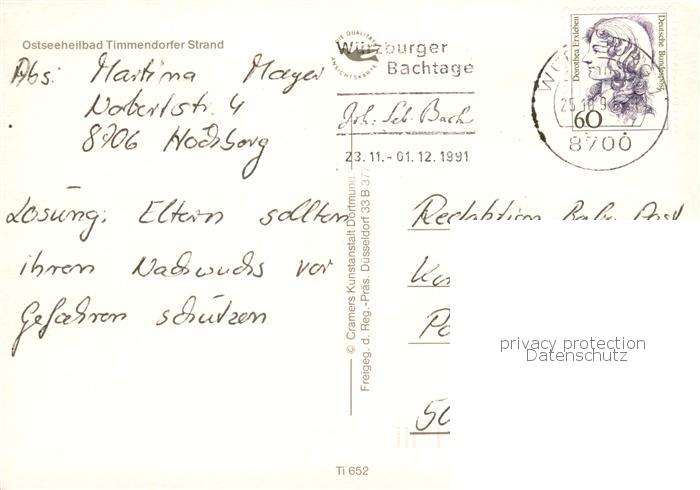 Ostseeheilbad Timmendorfer Strand
Abs: Martina Mager
Norbertstr. 4
8706 Höchberg
Losung: Eltern sollten
ihren Nachwuchs vor
Gefahren schützen
DIE QUALITÄTS
ANSICHTSKARTE
Würzburger
Bachtage
Joh. Seb. Bach
23.11.-01.12.1991
Dorothea Erxleben
Deutsche Bundespost
60
25.10.9
8700
© Cramers Kunstanstalt Dortmund
Freigeg. d. Reg.-Präs. Düsseldorf 33 B 377
Redaktion
50
privacy protection
Datenschutz
Ti 652